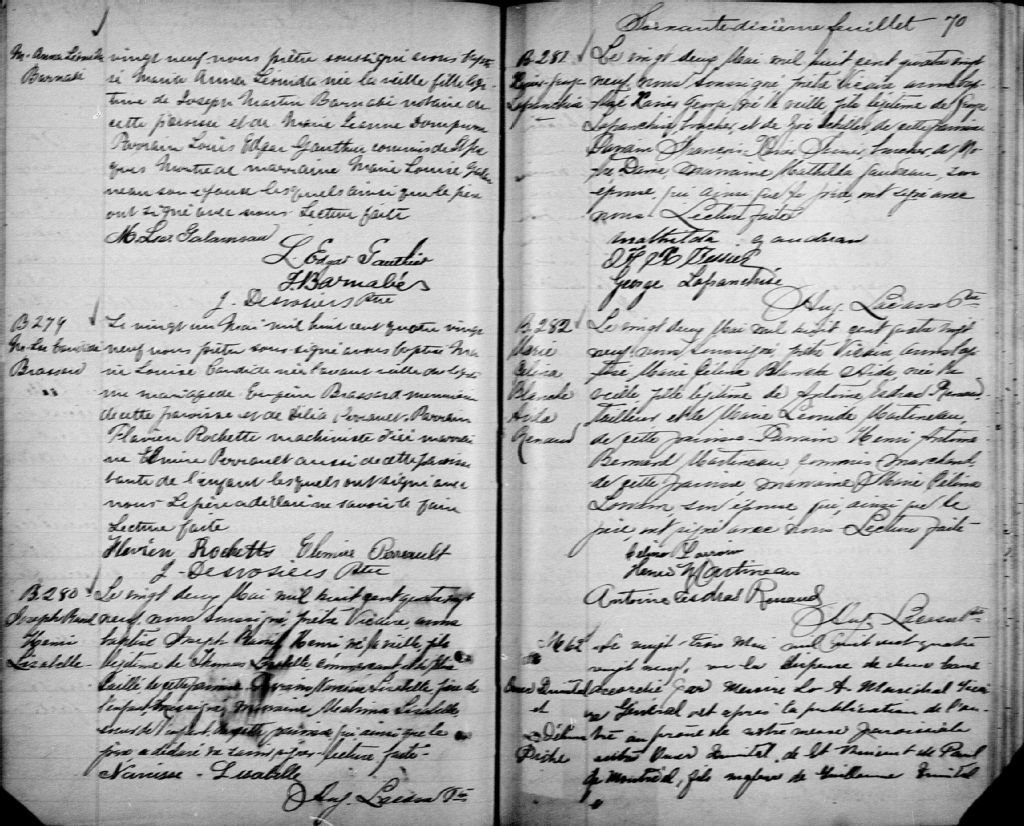 M. Anna Léonida
Barnabé
vingt neuf nous prêtre soussigné avons bapti
sé Marie Anna Léonida née la veille fille légi-
time de Joseph Martin Barnabé notaire de
cette paroisse et de Marie Jeanne
Parrain Louis Edgar Gauthier commis de St Ja
ques Montréal marraine Marie Louise Gala
neau son épouse lesquels ainsi que le père
ont signé avec nous Lecture faite
M. Lse Galarneau
L. Edgar Gauthier
J. Barnabé
J. Desrosiers Ptre
B 279
Brassard
Le vingt un Mai mil huit cent quatre vingt
neuf nous prêtre soussigné avons baptisé Ma
rie Louise Candide née l'avant veille du légi
me mariage de Brassard menuisier
de cette paroisse et de Délia Perrault Parrain
Flavien Rochette machiniste d'ici marrai
ne Elmire Perrault aussi de cette paroisse
tante de l'enfant lesquels ont signé avec
nous Le père a déclaré ne savoir le faire
Lecture faite
Flavien Rochette Elmire Perreault
J. Desrosiers Ptre
B. 280
Joseph
Henri
Lizabelle
Le vingt deux Mai mil huit cent quatre vingt
neuf, nous soussigné, prêtre Vicaire avons
baptisé Joseph Henri né la veille, fils
légitime de Thomas commerçant et de
de cette paroisse Parrain Narcisse Lizabelle, frère de
l'enfant marraine
soeur de l'enfant, de cette paroisse qui ainsi que le
père a déclaré ne savoir signer lecture faite
Narcisse - Lizabelle
Aug. Ptre
Soixante dixième feuillet 70
B 281
Lafranchise
Le vingt deux Mai mil huit cent quatre vingt
neuf, nous soussigné prêtre Vicaire avons bap-
tisé Xavier George né la veille, fils légitime de George
Lafranchise, boucher, et de de cette paroisse
Parrain François boucher, de No-
tre Dame, marraine Mathilda Gaudreau, son
épouse, qui ainsi que le père, ont signé avec
nous Lecture faite
Mathilda Gaudreau
George Lafranchise
Aug. Ptre
B 282
Marie
Célina
Blanche
Aida
Renaud
Le vingt deux Mai mil huit cent quatre vingt
neuf, nous soussigné, prêtre Vicaire avons bap-
tisé Marie Célina Blanche Aida née la
veille, fille légitime de Antoine Esdras Renaud
tailleur et de Marie Léonide Martineau,
de cette paroisse - Parrain Henri Antoine
Bernard Martineau commis marchand,
de cette paroisse marraine Marie Célina
son épouse qui, ainsi que le
père, ont signé avec nous Lecture faite
Henri Martineau
Antoine Esdras Renaud
Aug. Ptre
M 62
et
Le vingt-trois Mai mil huit cent quatre
vingt neuf, vu la dispense de deux bans
accordée par Messire L. A. Maréchal Vicai
re Général et après la publication de l'au
tre au prone de notre messe paroissiale
entre de St Vincent de Paul
de Montréal, fils majeur de Guillaume